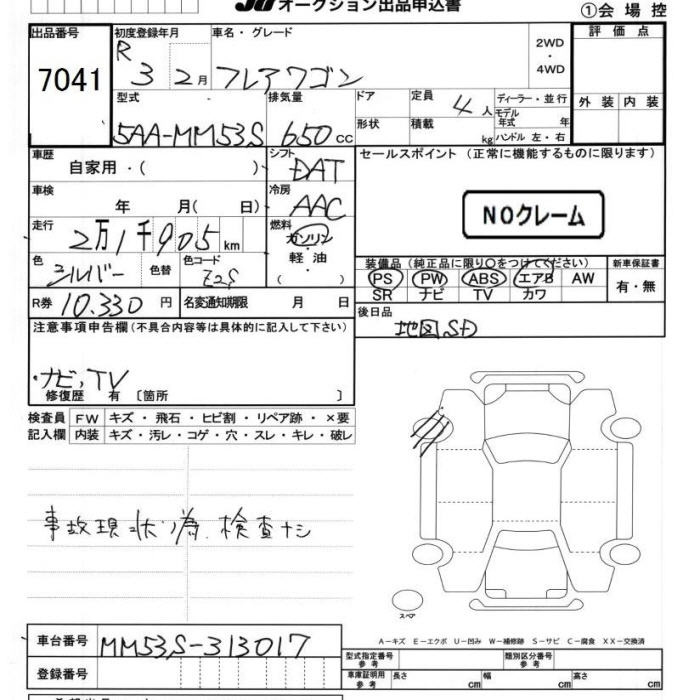 JU オークション出品申込書
①会場控
出品番号
7041
初度登録年月
R 3 2月
車名・グレード
フレアワゴン
2WD
・
4WD
評価点
外装 内装
型式
5AA-MM53S
排気量
650cc
ドア
形状
定員
4人
積載
kg
ディーラー・並行
モデル年式 年
ハンドル 左・右
車歴
自家用・( )
シフト
DAT
セールスポイント (正常に機能するものに限ります)
NOクレーム
車検
年 月( 日)
冷房
AAC
走行
2万1千905km
燃料
ガソリン
軽油
( )
色
シルバー
色替
色コード
Z2S
装備品(純正品に限り○をつけてください)
PS PW ABS エアB AW
SR ナビ TV カワ
新車保証書
有・無
R券 10.330円
名変通知期限 月 日
後日品
地図SD
注意事項申告欄(不具合内容等は具体的に記入して下さい)
・ナビ,TV
修復歴 有〔箇所 〕
検査員 FW キズ・飛石・ヒビ割・リペア跡・×要
記入欄 内装 キズ・汚レ・コゲ・穴・スレ・キレ・破レ
事故現状ノ為 検査ナシ
スペア
A－キズ E－エクボ U－凹み W－補修跡 S－サビ C－腐食 XX－交換済
車台番号 MM53S-313017
登録番号
型式指定番号 参考
類別区分番号 参考
車庫証明用 参考 長さ cm 幅 cm 高さ cm